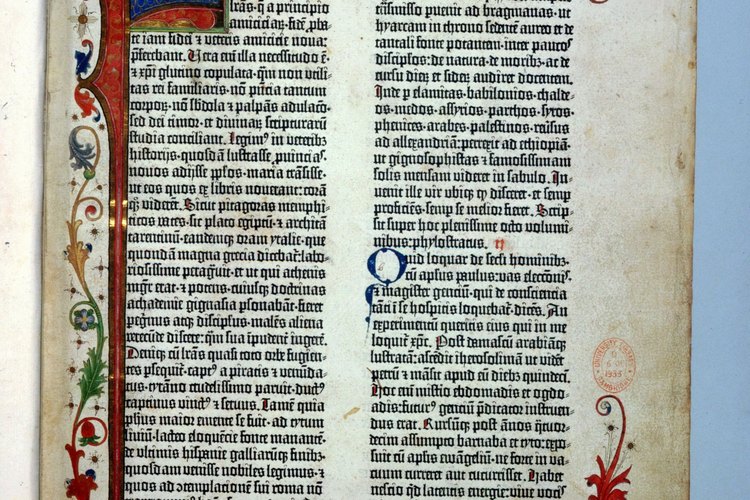 lrās· q̄ a principio
amiciciaꝝ· fidē ꝓba-
te iam fidei ⁊ veteris amicicie noua:
p̄ferebant. Vera eni illa necessitudo ē·
⁊ xp̄i glutino copulata: qm̄ non vtili-
tas rei familiaris· nō p̄ncia tantum
corpoꝝ· nō sb̄dola ⁊ palpās adulacō·
sed dei timor· et divinaꝝ scripturarū
studia conciliant. Legimꝰ in veteribꝫ
historijs· quosdā lustrasse ꝓuincias·
nouos adijsse ppl̄os· maria trāsisse·
ut eos quos ex libris nouerant: corā
qꝫ viderēt. Sicut pitagoras memphi-
ticos vates· sic plato egiptū· ⁊ architā
tarentinū· eandemqꝫ oram ytalie· que
quondam magna grecia dicebaᵗ: labo-
riosissime peragrauit· et ut qui athenis
mgr̄ erat· ⁊ potens· cuiusqꝫ doctrinas
achademie gignasia ꝑsonabāt· fieret
peꝛegrinꝰ atqꝫ discipulus· malēs aliena
verecūde discere: qm̄ sua īpudent̄ ingeꝛe.
Deniqꝫ cū lr̄as quasi toto orbe fugien-
tes ꝑseqᵗur· captꝰ a piratis ⁊ venūda-
tus· tyrāno crudelissimo paruit· ductꝰ
captiuus vinctꝰ ⁊ seruus. Tamē quia
phūs maior emente se fuit· ad tytum
liuiū· lacteo eloquēcie fonte manantē·
de vltimis hispanie galliaꝝqꝫ finibꝫ·
quosdam venisse nobiles legimus· ⁊
quos ad ꝯtemplacionē sui roma nō
tenissimo puenit ad bragmanas· ut
hyarcam in throno sedentē aureo et de
tantali fonte potantem· inter paucos
discipulos: de natura· de moribꝫ· ac de
cursu dieꝝ et sideꝝ audiret docentem.
Inde ꝑ elamitas· babilonios· chalde-
os· medos· assyrios· parthos· syros·
phenices· arabes· palestinos· reūsus
ad allexandriā: perrexit ad ethiopiā·
ut gignosophistas ⁊ famosissimam
solis mensam videret in sabulo. In-
uenit ille vir ubiqꝫ qd̄ disceret· et semꝑ
proficiēs· semꝑ se melior fieret. Scrip-
sit super hoc plenissime octo volumi-
nibus: phylostratus. II
Quid loquar de sc̄li hominibꝫ·
cū apl̄us paulus: vas electionis·
⁊ magister genciū· qui de consciencia
tāti ī se hospitis loquebaᵗ· dices. An
experimentū queritis eius qui in me
loquit̄ xp̄c. Post damascū arabiāqꝫ
lustratā: ascēdit iherosolimā ut videret
petrū ⁊ māsit apud eū diebꝫ quindeci.
Hoc enī misterio ebdomadis et ogdo-
adis: futurꝰ genciū p̄dicator instruen-
dus erat. Rursūqꝫ post ānos qtuor-
decim assumpto barnaba et tyto: expo-
suit cū apl̄is ewāgeliū· ne forte in va-
cuum curreret aut cucurrisset. Habet
nescio qd̄ latentis energie· viue vocis
UNIVERSITY LIBRARY
1933
CAMBRIDGE